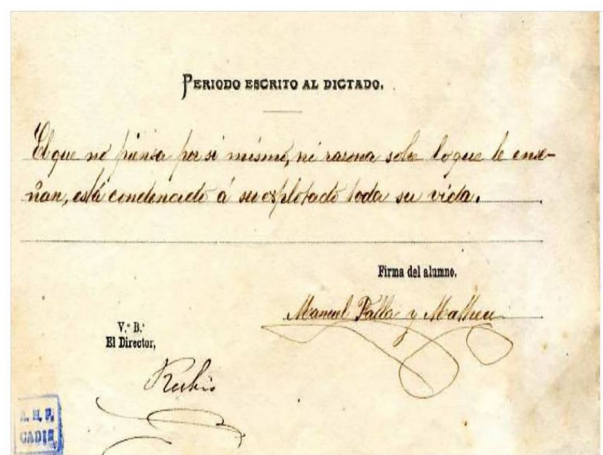 PERIODO ESCRITO AL DICTADO.
El que no piensa por si mismo, ni razona sobre lo que le ense-
ñan, está condenado á ser explotado toda su vida.
Firma del alumno.
Manuel Falla y Matheu
V.º B.º
El Director,
Rubio
A. H. P.
CADIZ